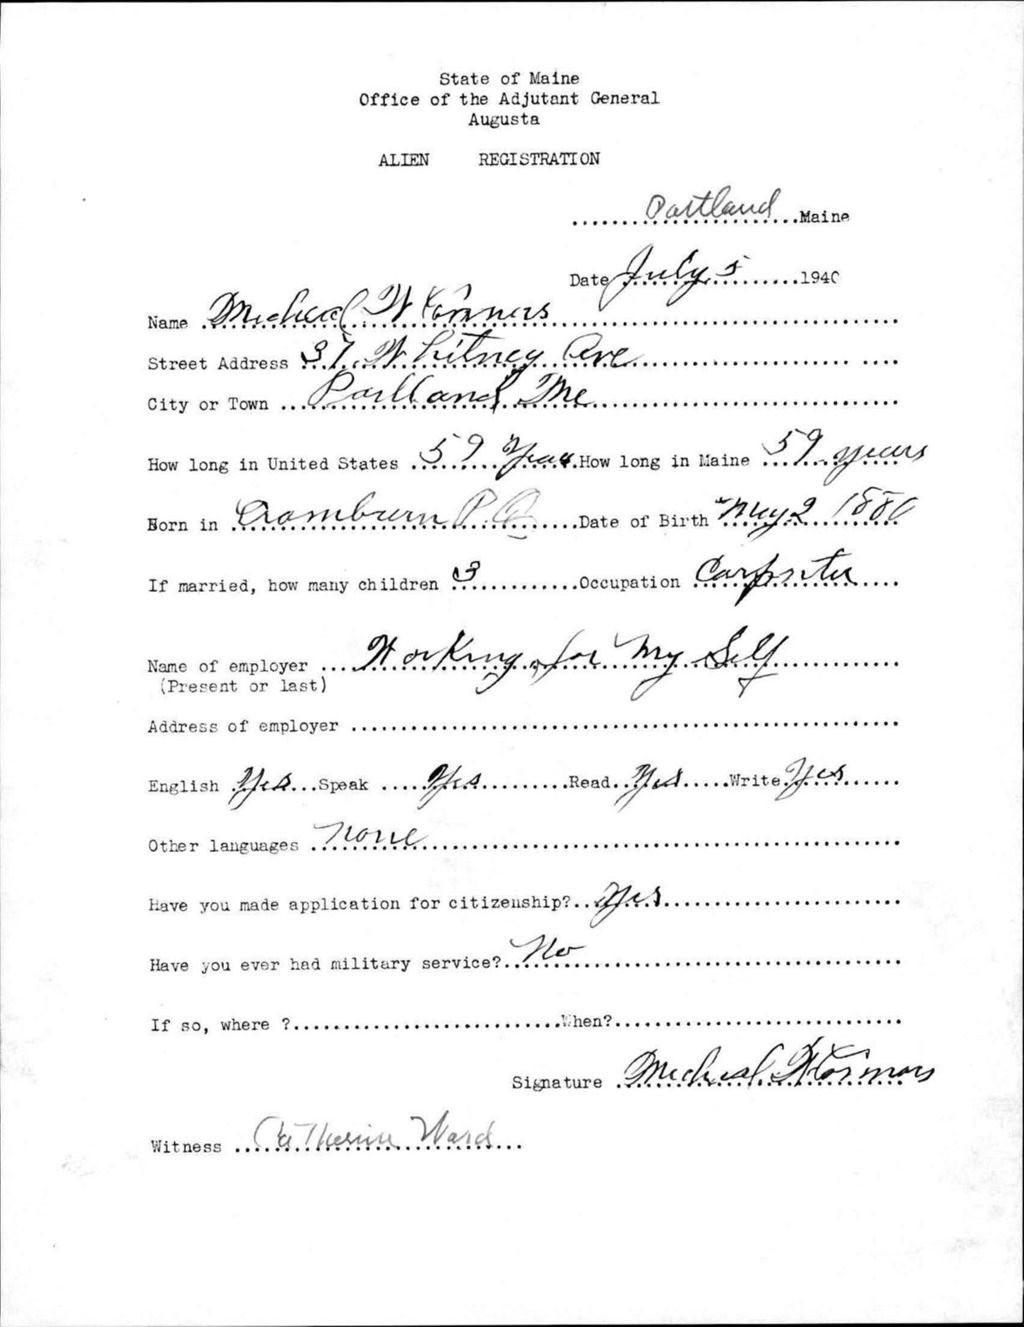 State of Maine
Office of the Adjutant General
Augusta
ALIEN REGISTRATION
Portland Maine
Date July 5 1940
Name Micheal W Connors
Street Address 37 Whitney Ave
City or Town Portland Me
How long in United States 59 Years How long in Maine 59 years
Born in P.Q Date of Birth May 2 1880
If married, how many children 3 Occupation Carpnter
Name of employer Working for My Self
(Present or last)
Address of employer
English Yes Speak Yes Read Yes Write Yes
Other languages none
Have you made application for citizenship? Yes
Have you ever had military service? No
If so, where ? When?
Signature Micheal W Connors
Witness Catherine Ward